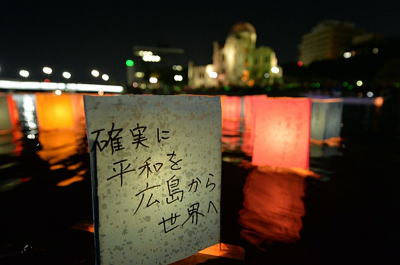 確実に
平和を
広島から
世界へ